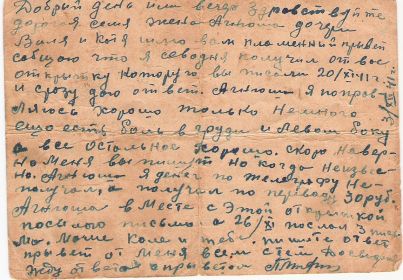 Добрый день или вечер здравствуйте
дорогая семя жена Агнюша дочери
Валя и Катя шлю вам пламенный привет
сообщаю что я севодня получил от вас
открытку которую вы писали 20/XI-41 г
и сразу даю ответ. Агнюша я поправ
ляюсь хорошо только немного
ещо есть боль в груди и левом боку
а все остальное хорошо. скоро навер
но меня выпишут но когда неизвес
но. Агнюша я денег по телеграфу не
получал, а получал по переводу 30 руб
Агнюша в месте с этой открыткой
посылаю письмо а 26/XI послал 3 пись
ма. Коле и тебе. пишите ответ
привет от меня всем
жду ответа с приветом
3/XII-41 г.